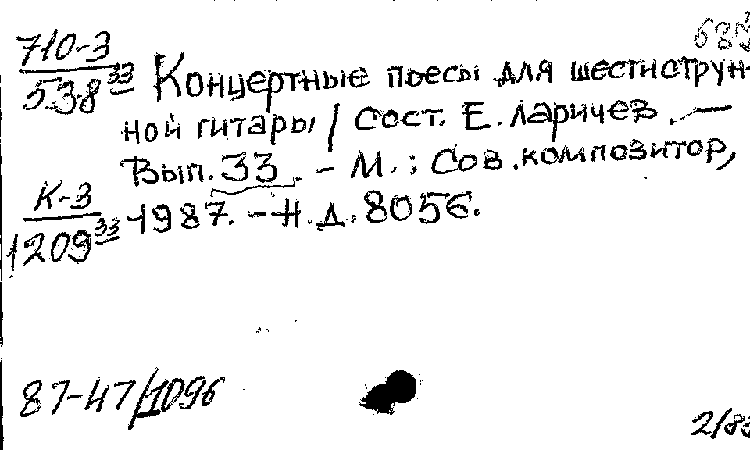 710-3
538 33
Концертные пьесы для шестиструн-
ной гитары / Сост. Е. Ларичев. —
Вып. 33. – М.: Сов. композитор,
1987. – Н. д. 8056.
К-3
1209 33
87-47/1096